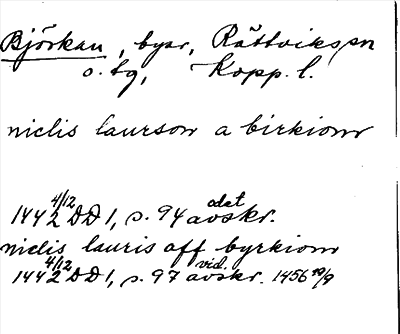 Björkan, byar, Rättvikspn
o. tg, Kopp. l.
niclis laurson a birkiom
4/12 odat
1442 DD 1, s. 94 avskr.
niclis lauris aff byrkiom
4/12 vid.
1442 DD 1, s. 97 avskr. 1456 10/9